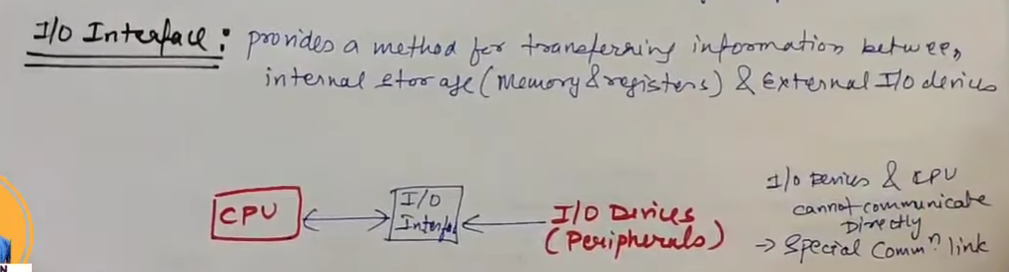 I/O Interface: provides a method for transferring information between
internal storage (Memory & registers) & External I/O devices
CPU
I/O
Interfac
I/O Devices
(Peripherals)
I/O Devices & CPU
cannot communicate
Directly
→ Special Commⁿ link
N